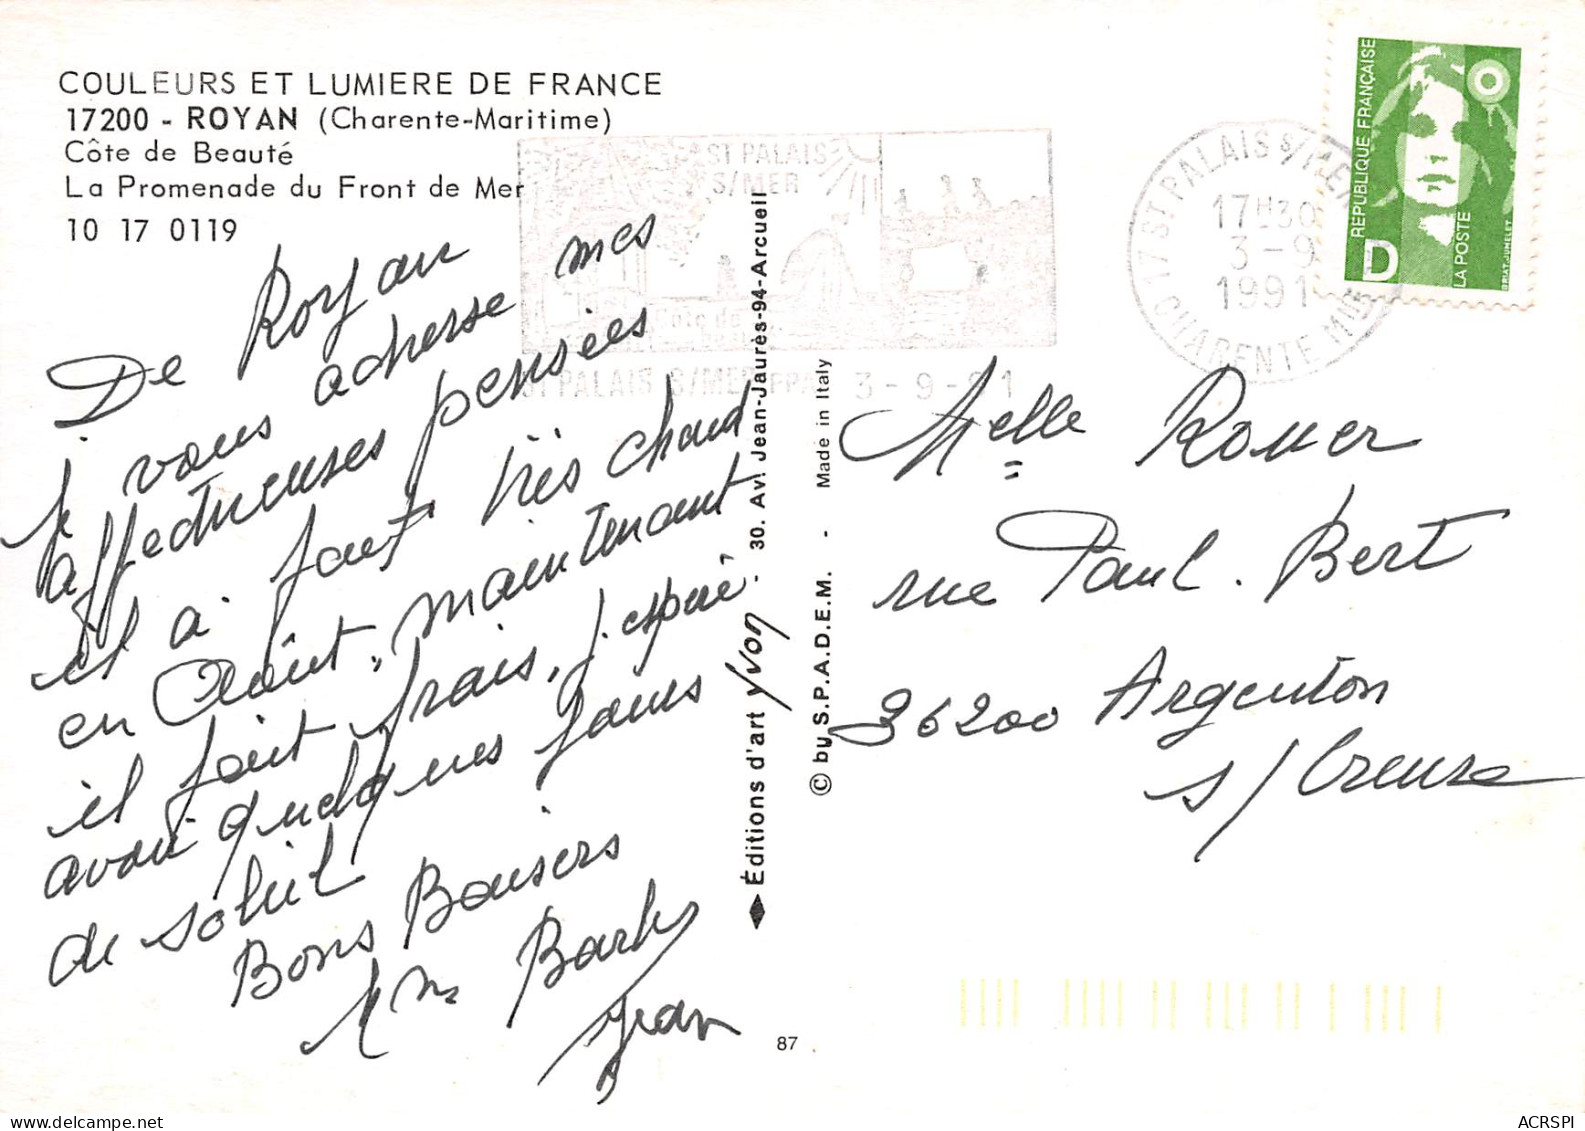 COULEURS ET LUMIERE DE FRANCE
17200 - ROYAN (Charente-Maritime)
Côte de Beauté
La Promenade du Front de Mer
10 17 0119
De Royan
je vous adresse mes
affectueuses pensées
il a fait très chaud
en Août, maintenant
il fait frais, j'espère
avoir quelques jours
de soleil
Bons Baisers
Jean
ST PALAIS
S/MER
Côte de
beauté
ST PALAIS S/MER PPAL 3-9-91
17 ST PALAIS S/MER
17H30
3-9
1991
CHARENTE MME
RÉPUBLIQUE FRANÇAISE
D
LA POSTE
BRIAT. JUMELET
Melle Rouer
rue Paul. Bert
36200 Argenton
s/Creuse
Éditions d'art yvon - 30. Av. Jean-Jaurès-94-Arcueil
© by S.P.A.D.E.M. - Made in Italy
87
ACRSPI